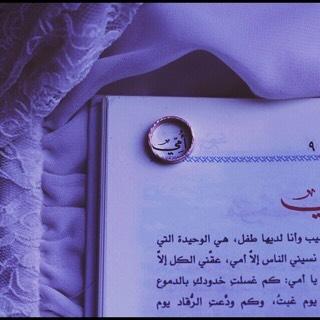 ٩
أمي
يب وأنا لديها طفل، هي الوحيدة التي
نسيني الناس إلاّ أمي، عقّني الكل إلاّ
يا أمي: كم غسلتِ خدودكِ بالدموع
يوم غبتُ، وكم ودّعتِ الرُّقاد يوم